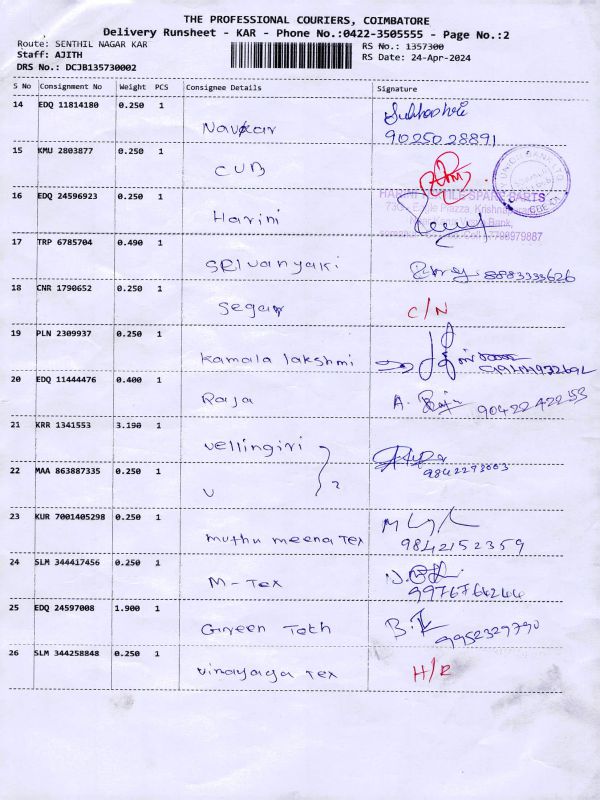 THE PROFESSIONAL COURIERS, COIMBATORE
Delivery Runsheet - KAR - Phone No.:0422-3505555 - Page No.:2
Route: SENTHIL NAGAR KAR
RS No.: 1357300
Staff: AJITH
RS Date: 24-Apr-2024
DRS No.: DCJB135730002
S No Consignment No Weight PCS Consignee Details Signature
14 EDQ 11814180 0.250 1
Navkar
9025028891
15 KMU 2803877 0.250 1
CUB
16 EDQ 24596923 0.250 1
Harini
17 TRP 6785704 0.490 1
Srivanyaki 8883333626
18 CNR 1790652 0.250 1
Segar C/N
19 PLN 2309937 0.250 1
Kamala lakshmi
20 EDQ 11444476 0.400 1
Raja A. 9042242253
21 KRR 1341553 3.190 1
vellingiri
22 MAA 863887335 0.250 1
V 2
23 KUR 7001405298 0.250 1
muthu meena Tex
9842152359
24 SLM 344417456 0.250 1
M-Tex
25 EDQ 24597008 1.900 1
Green Toth 9952329790
26 SLM 344258848 0.250 1
vinayaga Tex H/R